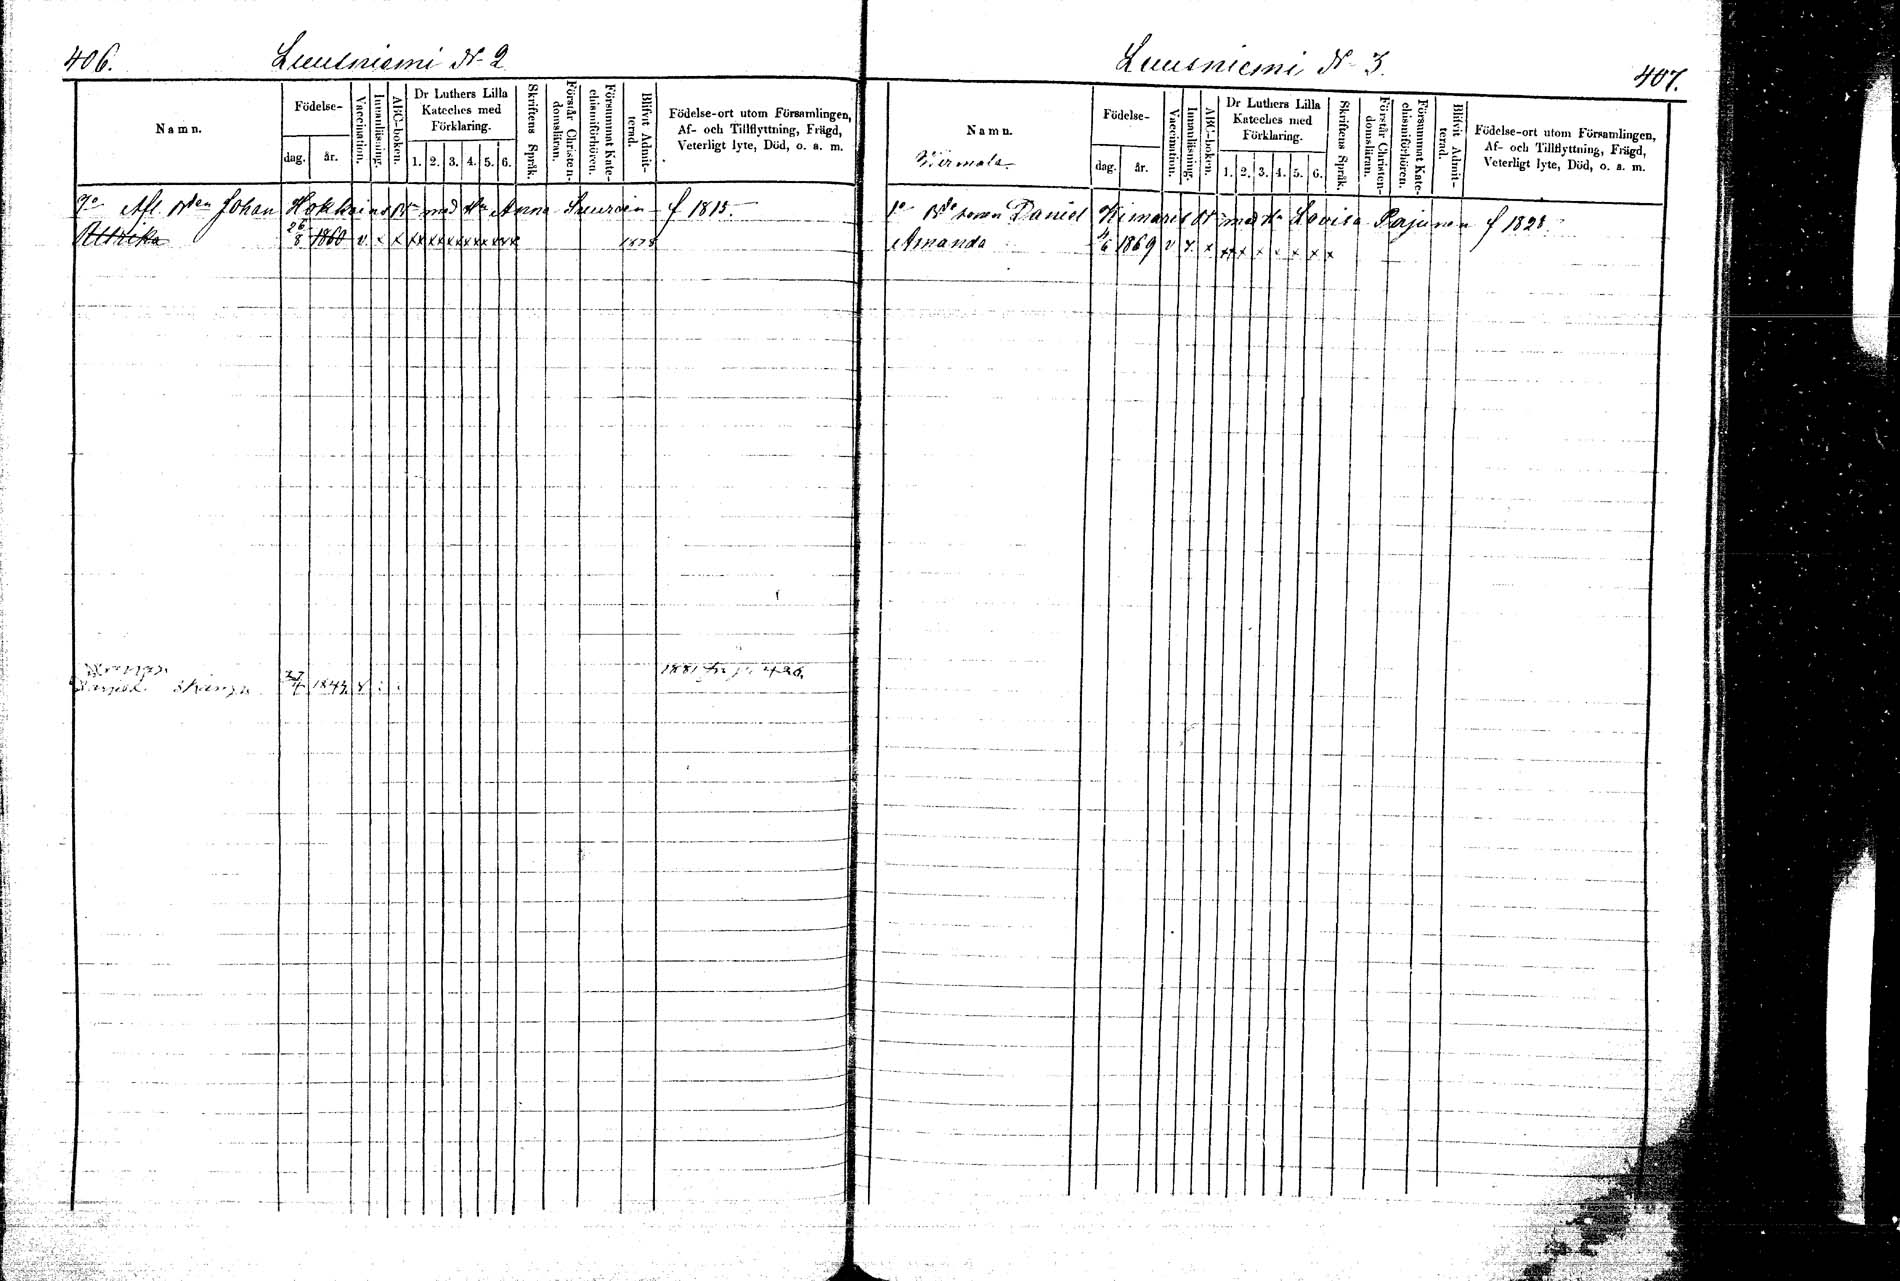 406.
Luusniemi № 2
Namn.
Födelse-
dag.
år.
Vaccination.
Innanläsning.
ABC-boken.
Dr Luthers Lilla
Kateches med
Förklaring.
1. 2. 3. 4. 5. 6.
Skriftens Språk.
Förstår Christen-
domsläran.
Försummat Kate-
chismiförhören.
Blifvit Admit-
terad.
Födelse-ort utom Församlingen,
Af- och Tillflyttning, Frägd,
Veterligt lyte, Död, o. a. m.
Afl. Johan med Anna f 1815.
Ulrika 26/8 1860 v x x xx xx xx xx xx xx 1878
27/4 1844 v
1881 fr p. 426.
Luusniemi № 3.
407.
Namn.
Wirmala
Födelse-
dag.
år.
Vaccination.
Innanläsning.
ABC-boken.
Dr Luthers Lilla
Kateches med
Förklaring.
1. 2. 3. 4. 5. 6.
Skriftens Språk.
Förstår Christen-
domsläran.
Försummat Kate-
chismiförhören.
Blifvit Admit-
terad.
Födelse-ort utom Församlingen,
Af- och Tillflyttning, Frägd,
Veterligt lyte, Död, o. a. m.
1o Daniel med Lovisa Parjunen f 1828
Amanda 4/6 1869 v x x x x x x x x